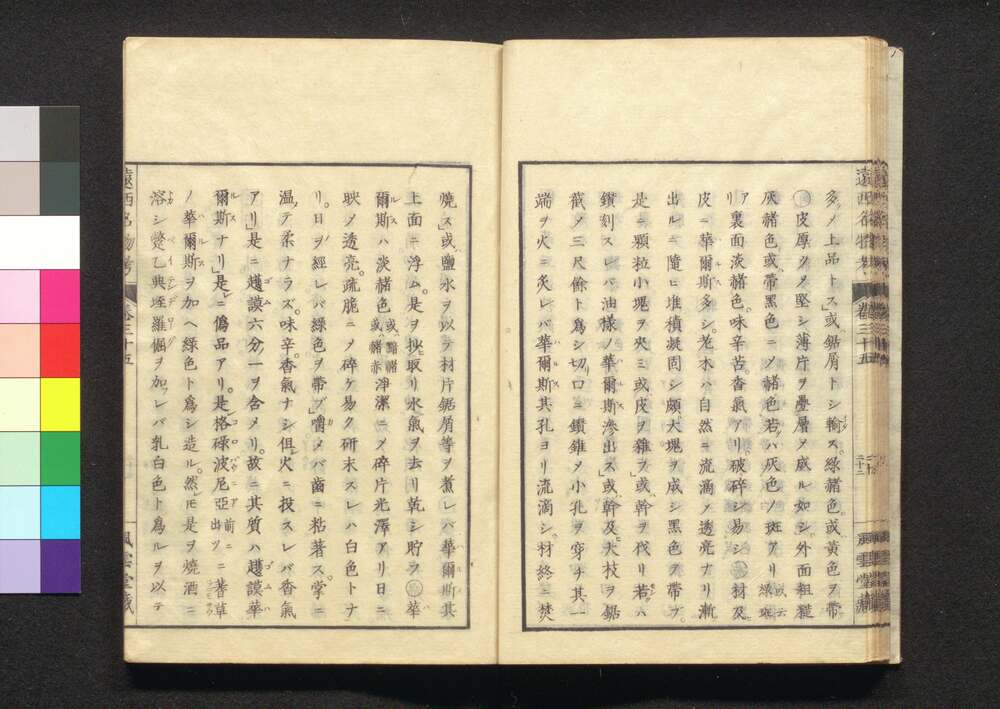 多シメ上品トス」或ハ鋸屑トシ輸ス。綠赭色。或ハ黄色ヲ帶
皮厚クメ堅シ薄片ヲ疊層メ成ル如シ。外面粗糙
灰赭色。或ハ帶黑色ニメ赭色若ハ灰色ノ斑アリ 或云綠斑
ア リ裏面淡赭色。味辛苦。香氣アリ。破碎シ易シ 材及
皮ニ華爾斯多シ。老木ハ自然ニ流滴メ透亮ナリ漸
出ルニ隨ヒ堆積凝固シ頗大塊ヲ成シ黑色ヲ帶ブ。
是ニ顆粒小塊ヲ夾ミ或ハ皮ヲ雜フ」或ハ幹ヲ伐リ若クハ
鑽刻スレバ油樣ノ華爾斯滲出ス」或ハ幹及ビ大枝ヲ鋸
截メ三尺餘ト爲シ切口ニ鑽錐メ小孔ヲ穿チ其一
端ヲ火ニ炙レバ華爾斯其孔ヨリ流滴シ。材終ニ焚
遠西名物考 卷三十五
二十二
風雲堂藏
燒ス」或ハ鹽水ヲ以テ材片鋸屑等ヲ煮レバ華爾斯其
上面ニ浮ム。是ヲ抄取リ水氣ヲ去リ乾シ貯フ 華
爾斯ハ淡赭色 或ハ黯赭或ハ赭赤 淨潔ニメ碎片光澤アリ日ニ
映メ透亮。疏脆ニメ碎ケ易ク研末スレハ白色トナ
リ。日ヲ經レバ綠色ヲ帶ブ」嚼メバ齒ニ粘著ス。掌ニ
温テ柔ナラズ。味辛。香氣ナシ但シ火ニ投スレバ香氣
アリ」是ニ越謨六分一ヲ含メリ。故ニ其質ハ越謨華
爾斯ナリ」是ニ僞品アリ。是レ格碌波尼亞 前ニ出ツ ニ蓍草
ノ華爾斯ヲ加ヘ綠色ト爲シ造ル。然レ𪜈是ヲ燒酒ニ
溶シ蹩乙典垤羅倔ヲ加フレバ乳白色ト爲ルヲ以テ
遠西名物考 卷三十五
風雲堂藏